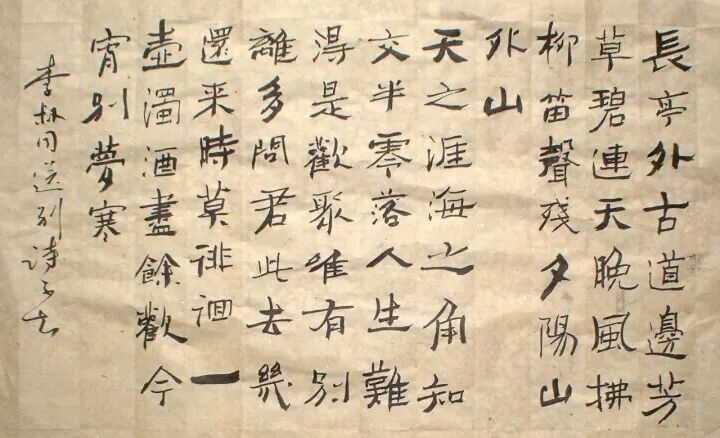 長亭外古道邊芳
草碧連天晚風拂
柳笛聲殘夕陽山
外山
天之涯海之角知
交半零落人生難
得是歡聚唯有別
離多問君此去幾
還来時莫徘徊一
壺濁酒盡餘歡今
宵別夢寒
李叔同送别诗